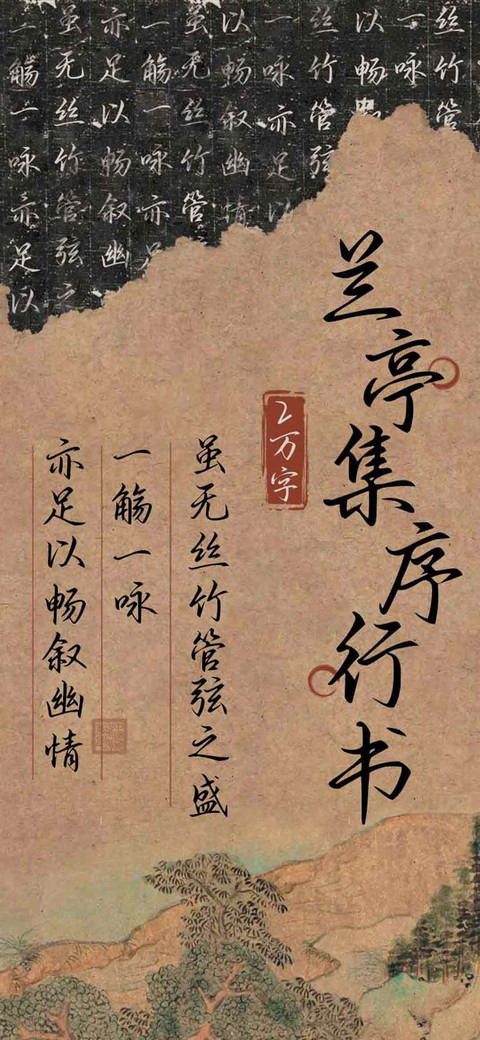 丝竹管
一咏
以畅
丝竹管弦
一咏亦足以
以畅叙幽情
虽无丝竹管
一觞一咏亦足
亦足以畅叙幽
虽无丝竹管弦之
一觞一咏亦足以
兰亭集序行书
2万字
虽无丝竹管弦之盛
一觞一咏
亦足以畅叙幽情